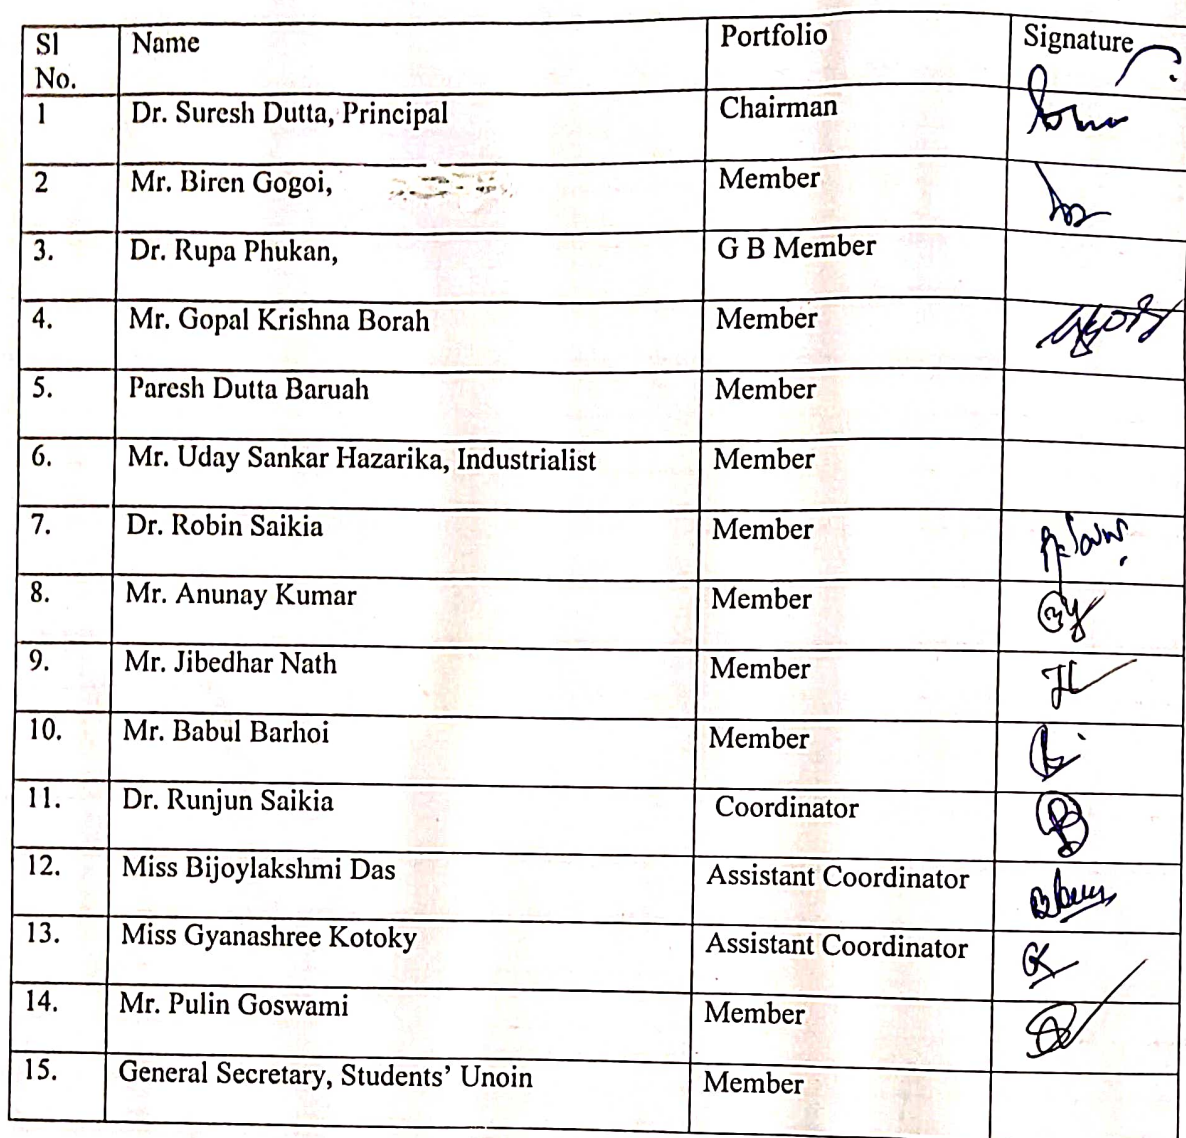 Sl No. Name Portfolio Signature
1 Dr. Suresh Dutta, Principal Chairman
2 Mr. Biren Gogoi, Member
3. Dr. Rupa Phukan, G B Member
4. Mr. Gopal Krishna Borah Member
5. Paresh Dutta Baruah Member
6. Mr. Uday Sankar Hazarika, Industrialist Member
7. Dr. Robin Saikia Member
8. Mr. Anunay Kumar Member
9. Mr. Jibedhar Nath Member
10. Mr. Babul Barhoi Member
11. Dr. Runjun Saikia Coordinator
12. Miss Bijoylakshmi Das Assistant Coordinator
13. Miss Gyanashree Kotoky Assistant Coordinator
14. Mr. Pulin Goswami Member
15. General Secretary, Students' Unoin Member